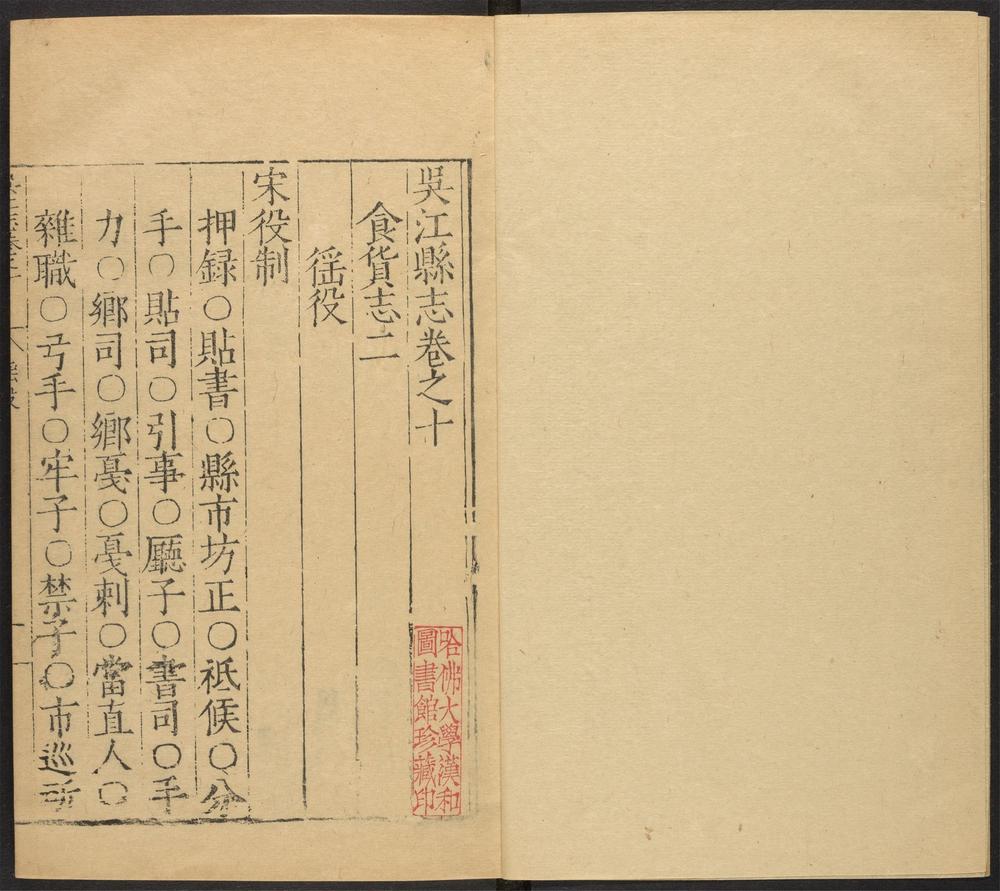 吳江縣志卷之十
食貨志二
徭役
宋役制
押録○貼書○縣市坊正○祗候○分
手○貼司○引事○廳子○書司○手
力○鄉司○鄉戞○戞刺○當直人○
雜職○弓手○牢子○禁子○市巡
哈佛大學漢和
圖書館珍藏印